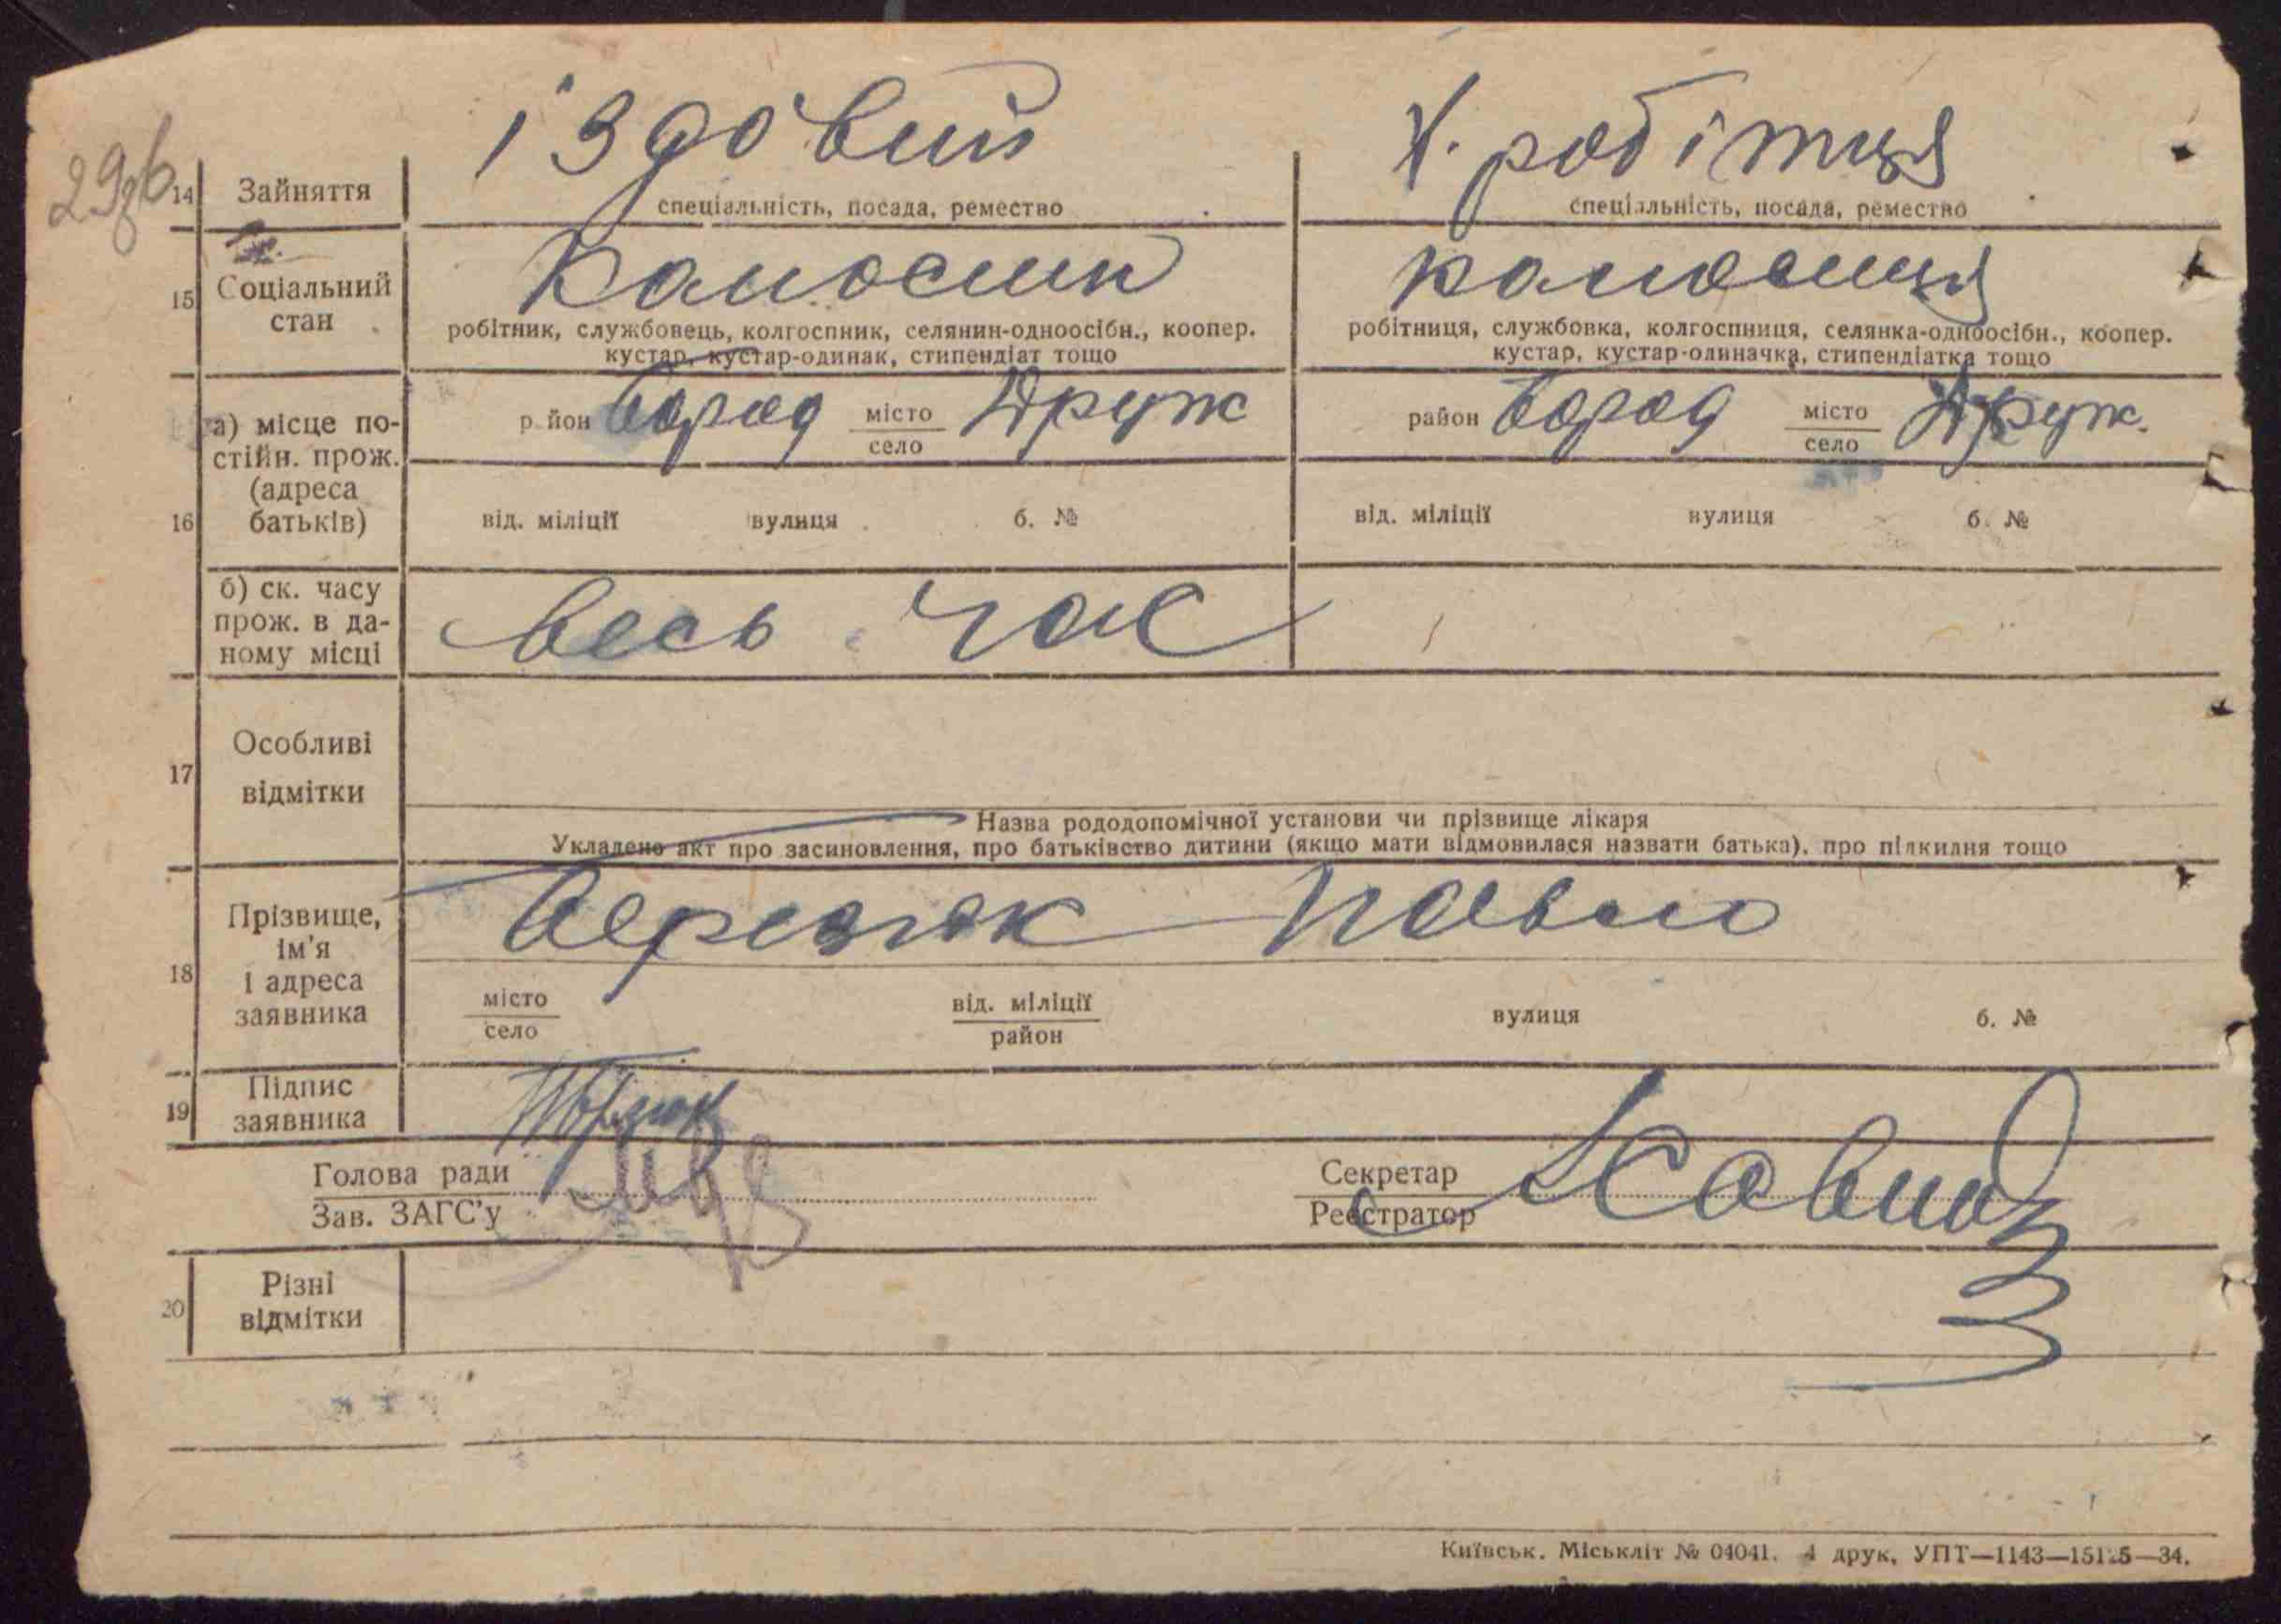 29зв
іздовий Х. робітця
14 Зайняття
спеціальність, посада, ремество спеціальність, посада, ремество
15 Соціальний стан
робітник, службовець, колгоспник, селянин-одноосібн., коопер. кустар, кустар-одинак, стипендіат тощо
робітниця, службовка, колгоспниця, селянка-одноосібн., коопер. кустар, кустар-одиначка, стипендіатка тощо
16 а) місце постійн. прож. (адреса батьків)
р йон Бород місто село Друж район Бород місто село Друж.
від. міліції вулиця б. № від. міліції вулиця б. №
б) ск. часу прож. в даному місці
весь час
17 Особливі відмітки
Назва рододопомічної установи чи прізвище лікаря
Укладено акт про засиновлення, про батьківство дитини (якщо мати відмовилася назвати батька), про підкидня тощо
18 Прізвище, ім'я і адреса заявника
Березюк Павло
місто село від. міліції район вулиця б. №
19 Підпис заявника
Голова ради Секретар
Зав. ЗАГС'у Реєстратор
20 Різні відмітки
Київськ. Міськліт № 04041. 4 друк, УПТ—1143—15125—34.